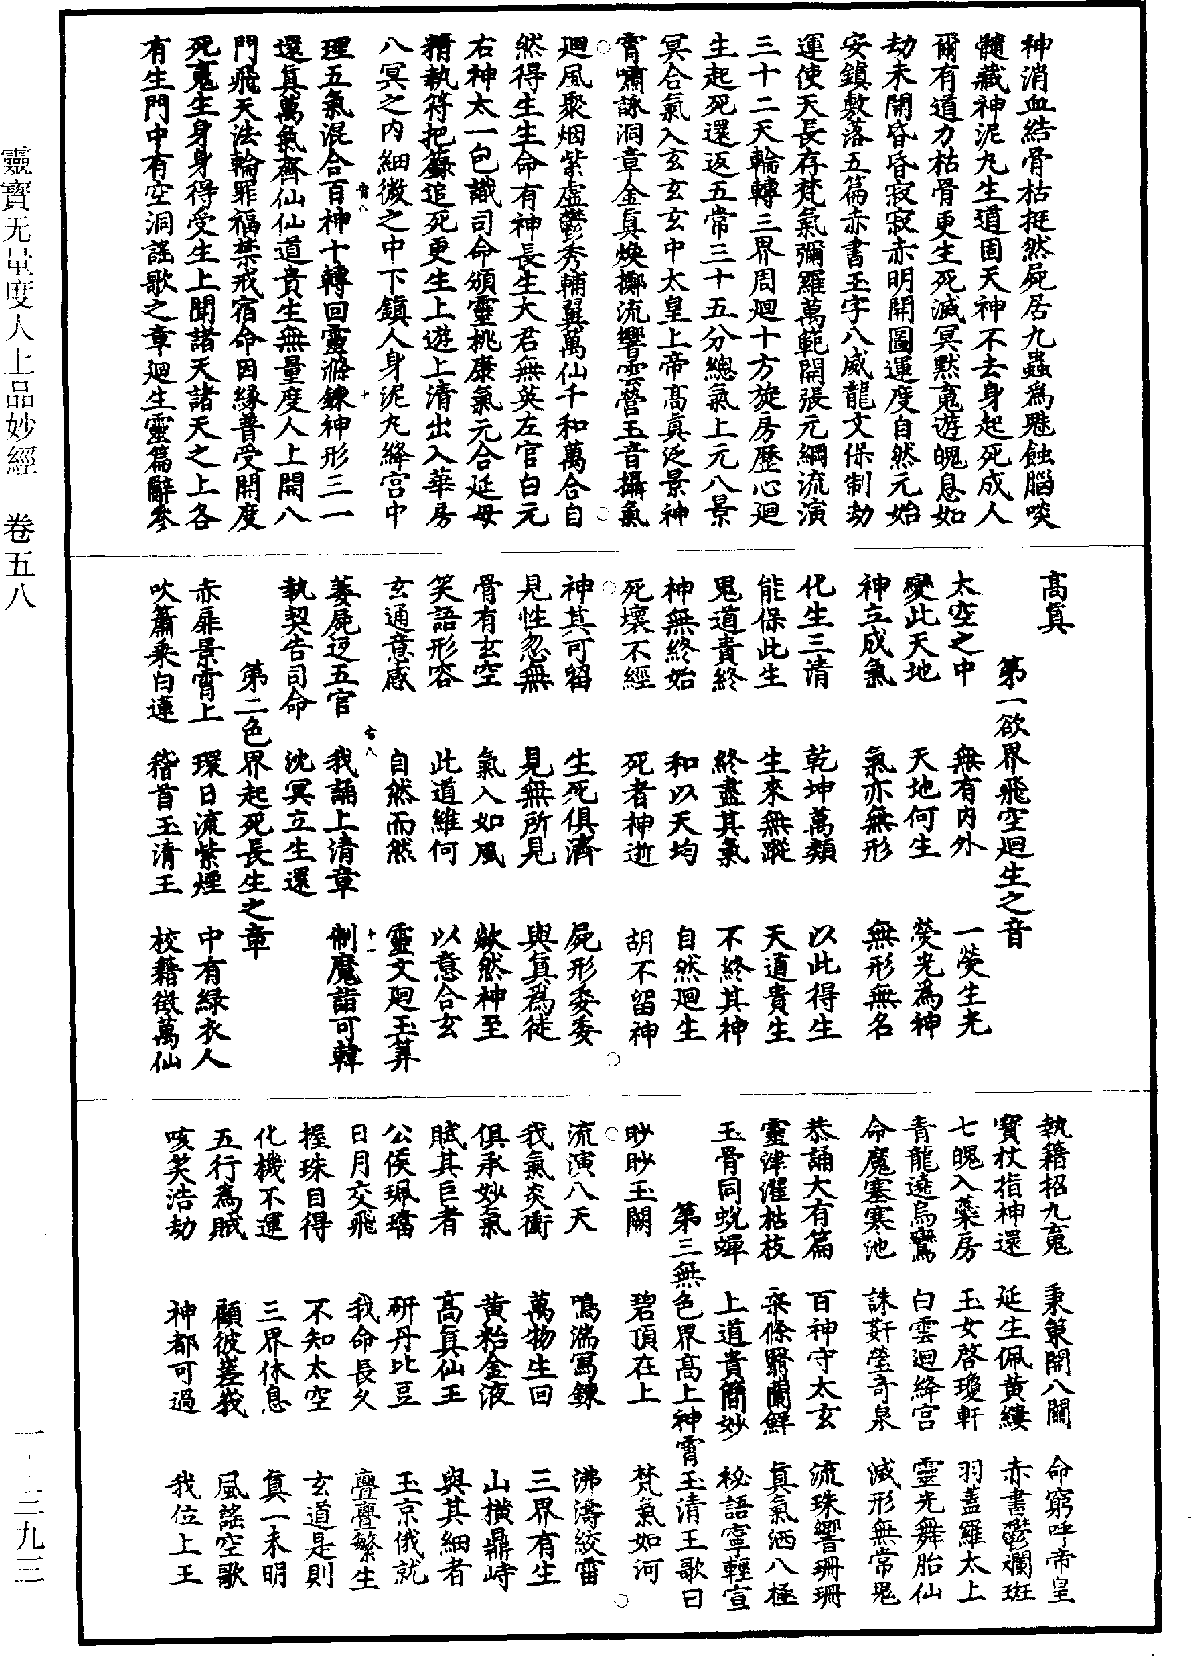 神消血結骨枯挺然屍居九蟲爲魅蝕腦啖
髓藏神泥丸生道固天神不去身起死成人
爾有道力枯骨更生死滅冥默䰟遊魄息如
劫未開昏昏寂寂赤明開圖運度自然元始
安鎮敷落五篇赤書玉字八威龍文保制劫
運使天長存梵氣彌羅萬範開張元綱流演
三十二天輪轉三界周廻十方旋房歷心廻
生起死還返五常三十五分總氣上元八景
冥合氣入玄玄玄中太皇上帝高眞泛景神
霄嘯詠洞章金眞煥擲流響雲營玉音攝氣
廻風聚烟紫虛鬱秀輔翼萬仙千和萬合自
然得生生命有神長生大君無英左官白元
右神太一包識司命頒靈桃康氣元合延母
精執符把籙追死更生上遊上清出入華房
八冥之內細微之中下鎮人身泥丸絳宮中
理五氣混合百神十轉回靈滌鍊神形三一
還眞萬氣齊仙仙道貴生無量度人上開八
門飛天法輪罪福禁戒宿命因緣普受開度
死䰟生身身得受生上聞諸天諸天之上各
有生門中有空洞謠歌之章廻生靈篇辭參
高眞
第一欲界飛空廻生之音
太空之中 無有內外 一熒生光
變此天地 天地何生 熒光爲神
神立成氣 氣亦無形 無形無名
化生三清 乾坤萬類 以此得生
能保此生 生來無蹤 天道貴生
鬼道貴終 終盡其氣 不終其神
神無終始 和以天均 自然廻生
死壞不經 死者神逝 胡不留神
神其可留 生死俱濟 屍形委委
見性忽無 見無所見 與眞爲徒
骨有玄空 氣入如風 歘然神至
笑語形容 此道維何 以意合玄
玄通意感 自然而然 靈文廻玉筭
萎屍迓五官 我誦上清章 制魔詣可韓
執契告司命 沈冥立生還
第二色界起死長生之章
赤扉景霄上 環日流紫煙 中有綠衣人
吹簫乘白蓮 稽首玉清王 校籍徵萬仙
執籍招九䰟 秉策開八關 命窮呼帝皇
寶杖指神還 延生佩黃縷 赤書鬱斕斑
七魄入藥房 玉女啓瓊軒 羽蓋羅太上
青龍遶烏鸞 白雲廻絳宮 靈光舞胎仙
命魔塞寒池 誅姧瑩奇泉 滅形無常鬼
恭誦大有篇 百神守太玄 流珠響珊珊
靈津濯枯枝 柔條翳蘭鮮 眞氣洒八極
玉骨同蛻蟬 上道貴簡妙 秘語寧輕宣
第三無色界高上神霄玉清王歌曰
眇眇玉闕 碧頂在上 梵氣如河
流演八天 鳴湍寫鍊 沸濤絞雷
我氣炎衝 萬物生回 三界有生
俱承妙氣 黃粭金液 山橫鼎峙
賦其巨者 高眞仙王 與其細者
公侯珮璫 研丹比豆 玉京俄就
日月交飛 我命長久 亹亹繁生
握珠自得 不知太空 玄道是則
化機不運 三界休息 眞一未明
五行爲賊 顧彼嵳峩 風謠空歌
咳笑浩劫 神都可過 我位上王
靈寶无量度人上品妙經 卷五八
一·三九三